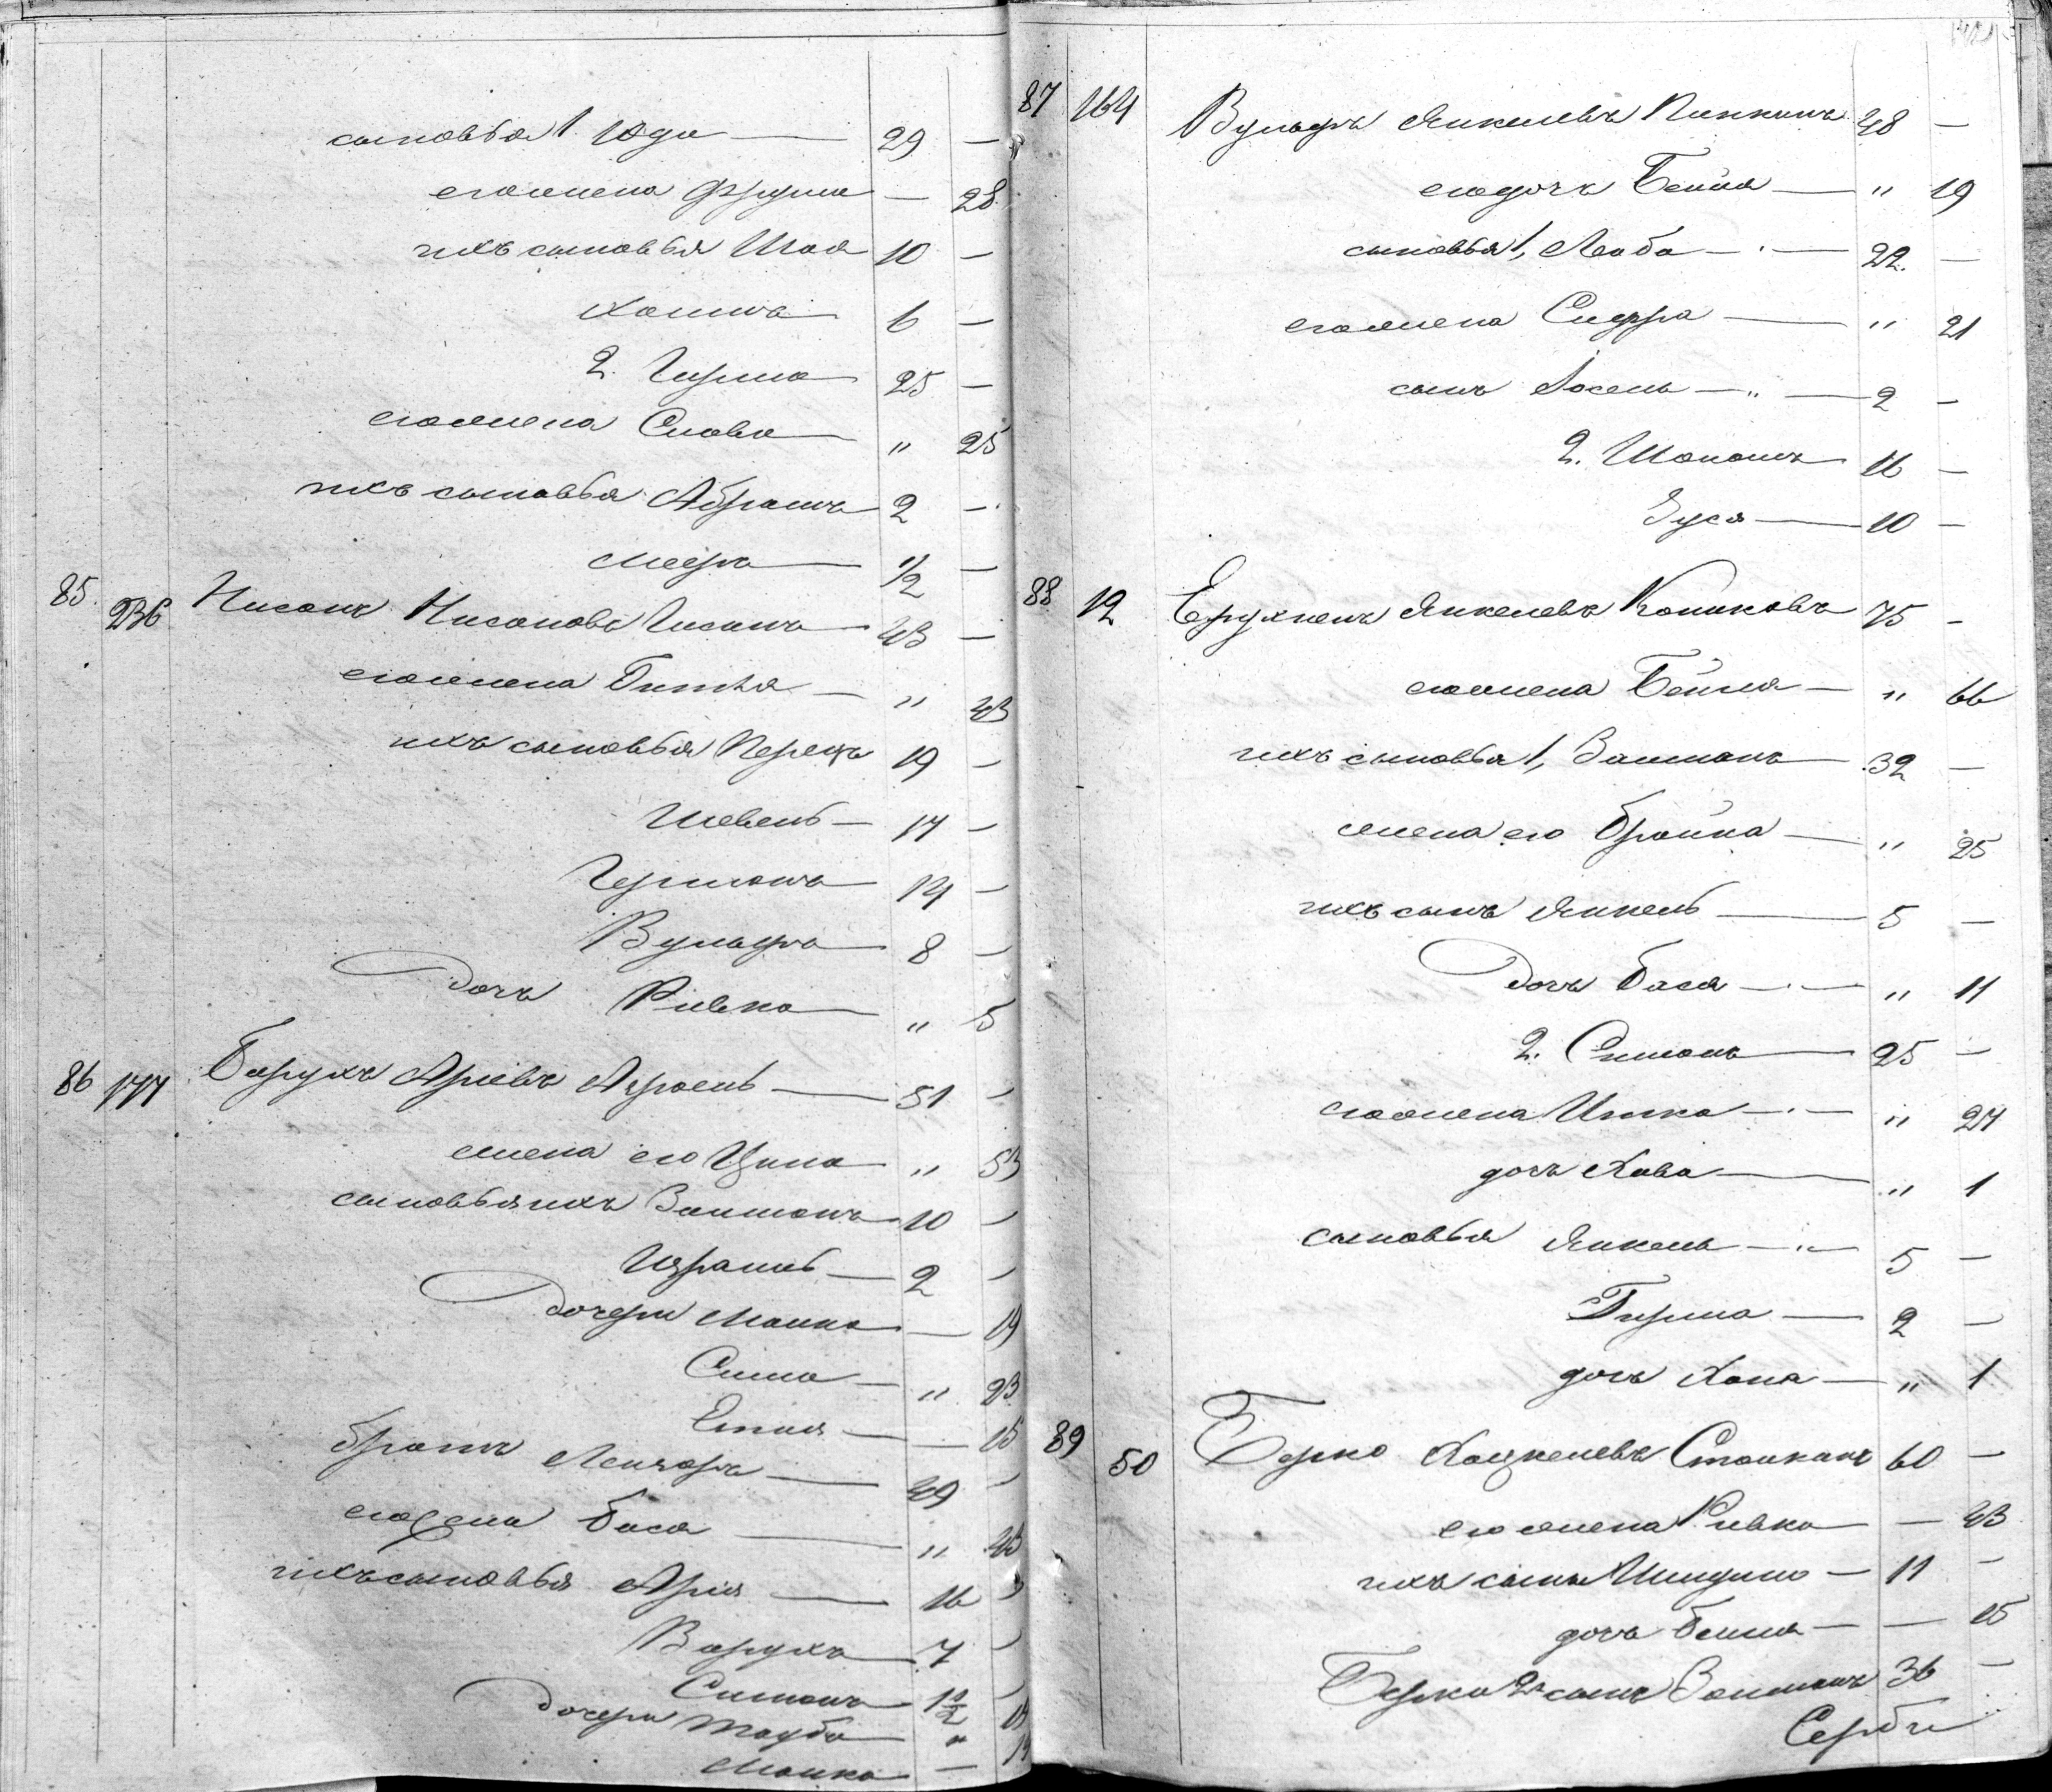 сыновья 1. Юда — 29 —
его жена Фрума — 28
ихъ сыновья Шая 10 —
Хаимъ 6 —
2. Гирша 25 —
его жена Слава „ 25
ихъ сыновья Абрамъ 2 —
Мееръ 1/2 —
85. 236 Нисонъ Нисоновъ 43 —
его жена Битья — „ 43
ихъ сыновья Перецъ 19 —
Шевель — 17 —
Гершонъ 14 —
Вульфъ 8 —
дочь Ривка „ 5
86 177 Барухъ Арiевъ 51 —
жена его Ципа „ 53
сыновья ихъ Залмонъ 10 —
Израиль — 2 —
дочери Малка — 19
Сима — „ 23
Етля — — 15
братъ Лейзеръ — 49 —
его жена Бася — „ 43
ихъ сыновья Арiя — 16 „
Барухъ 7 —
Симонъ 1 1/2 —
дочери Тауба „
Малка —
87 164 Вульфъ Янкелевъ Пинкинъ 48 —
его дочь Бейла — „ 19
сыновья 1, Лейба — 22. —
его жена Сифра — „ 21
сынъ Iосель — „ — 2 —
2. Шоломъ 16 —
Зуся — 10 —
88 12 Ерухиемъ Янкелевъ Копиковъ 75 —
его жена Бейля — „ 66
ихъ сыновья 1, Залманъ 32 —
жена его Брайна — „ 25
ихъ сынъ Янкель — 5 —
дочь Бася — „ 11
2. Симонъ 25 —
его жена Итка — „ 27
дочь Хава — „ 1
сыновья Янкель — „ 5 —
Гирша — 2 —
дочь Хана — „ 1
89 50 Берко Хацкелевъ 60 —
его жена Ривка — 43
ихъ сынъ — 11 —
дочь Бейля — — 15
Берки 2й сынъ Залманъ 36 —